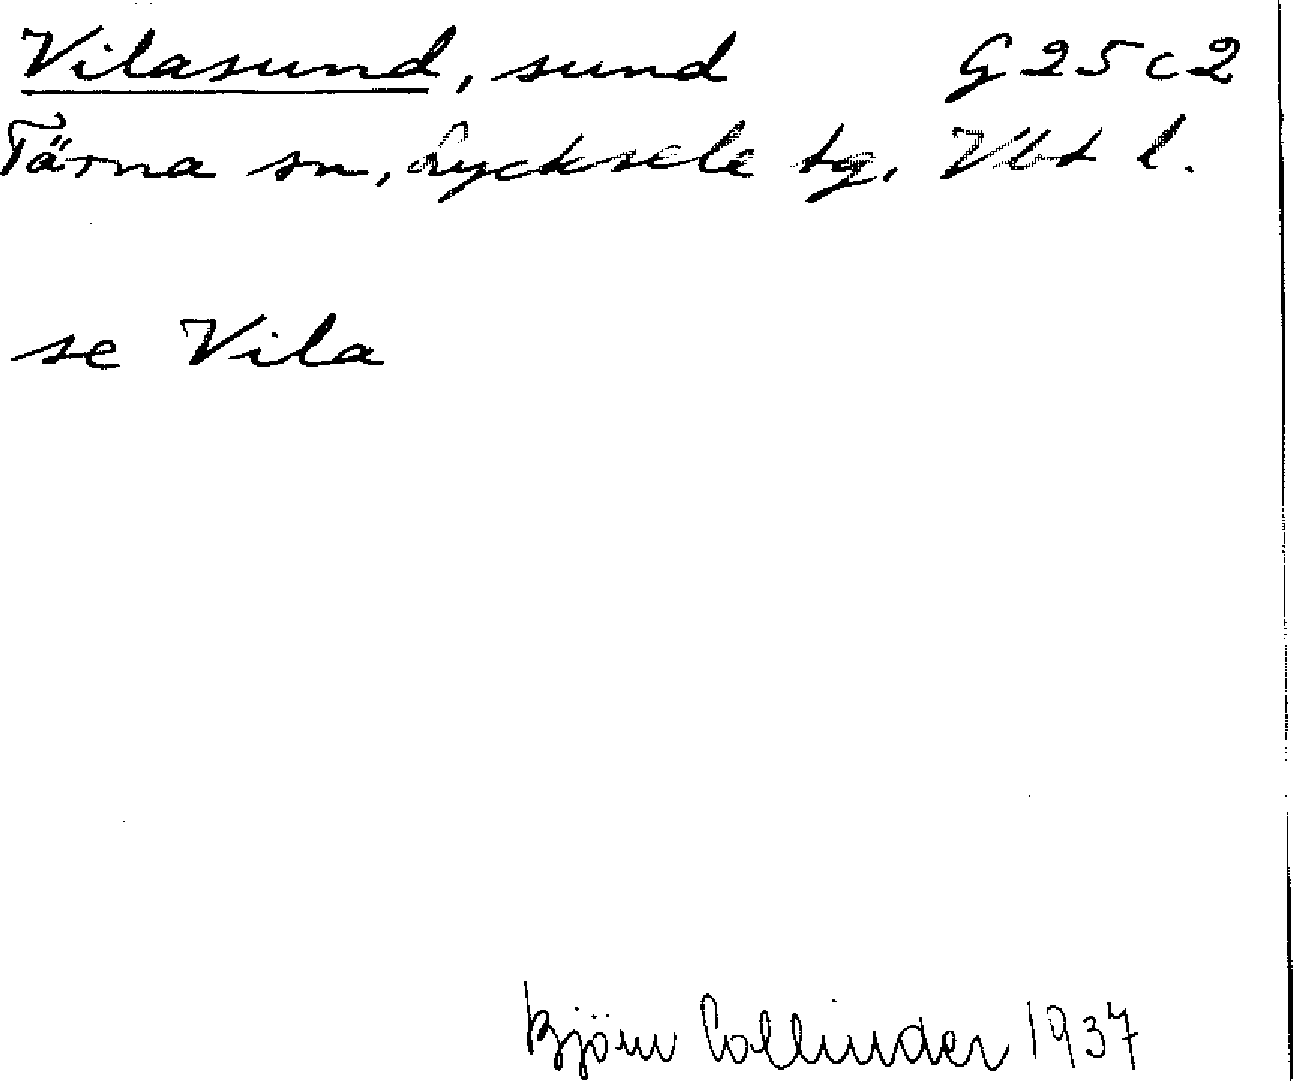 Vilasund, sund G 25 c 2
Tärna sn, Lycksele tg, Vbt l.
se Vila
Björn Collinder 1937